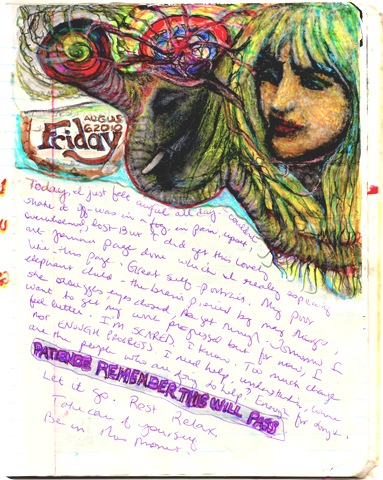 AUGUS
6 2010
Friday
Today I just felt awful all day. Couldn't
shake it off was in a fog, in pain, upset,
overwhelmed, lost. But I did get this lovely
art journal page done which I really
like - this page. Great self-portrait. My poor
elephant child - the brain pierced by many things,
she struggles, eyes closed, Tomorrow I
want to get my work but for now, I
feel better. I'M SCARED, I know. Too much change
NOT ENOUGH I need help, understanding,
are the people who are to help? Enough for
PATIENCE REMEMBER, THIS WILL PASS
Let it go. Rest Relax,
Take care of yourself
Be in the moment